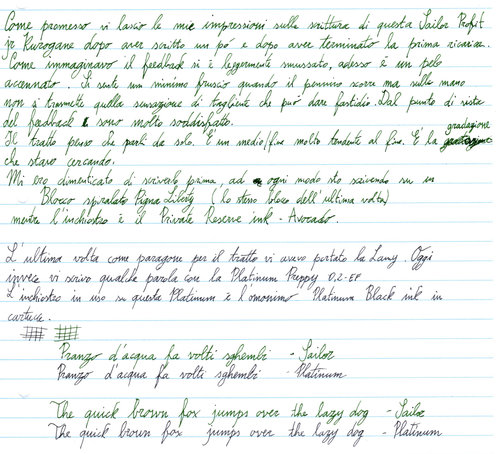 Come promesso vi lascio le mie impressioni sulla scrittura di questa Sailor Profit
jr Kurogane dopo aver scritto un pó e dopo aver terminato la prima ricarica.
Come immaginavo il feedback si è leggermente smussato, adesso è un pelo
accennato. Si sente un minimo fruscio quando il pennino scorre ma sulla mano
non si trasmette quella sensazione di tagliente che può dare fastidio. Dal punto di vista
del feedback sono molto soddisfatto.
Il tratto penso che parli da solo. È un medio/fine molto tendente al fine. È la gradazione
che stavo cercando.
Mi ero dimenticato di scriverlo prima, ad ogni modo sto scrivendo su un
Blocco spiralato Pigna Liberty (lo stesso blocco dell'ultima volta)
mentre l'inchiostro è il Private Reserve ink - Avocado.
L'ultima volta come paragone per il tratto vi avevo portato la Lamy. Oggi
invece vi scrivo qualche parola con la Platinum Preppy 0,2-EF
L'inchiostro in uso su questa Platinum è l'omonimo Platinum Black ink in
cartucce.
Pranzo d'acqua fa volti sghembi - Sailor
Pranzo d'acqua fa volti sghembi - Platinum
The quick brown fox jumps over the lazy dog - Sailor
The quick brown fox jumps over the lazy dog - Platinum